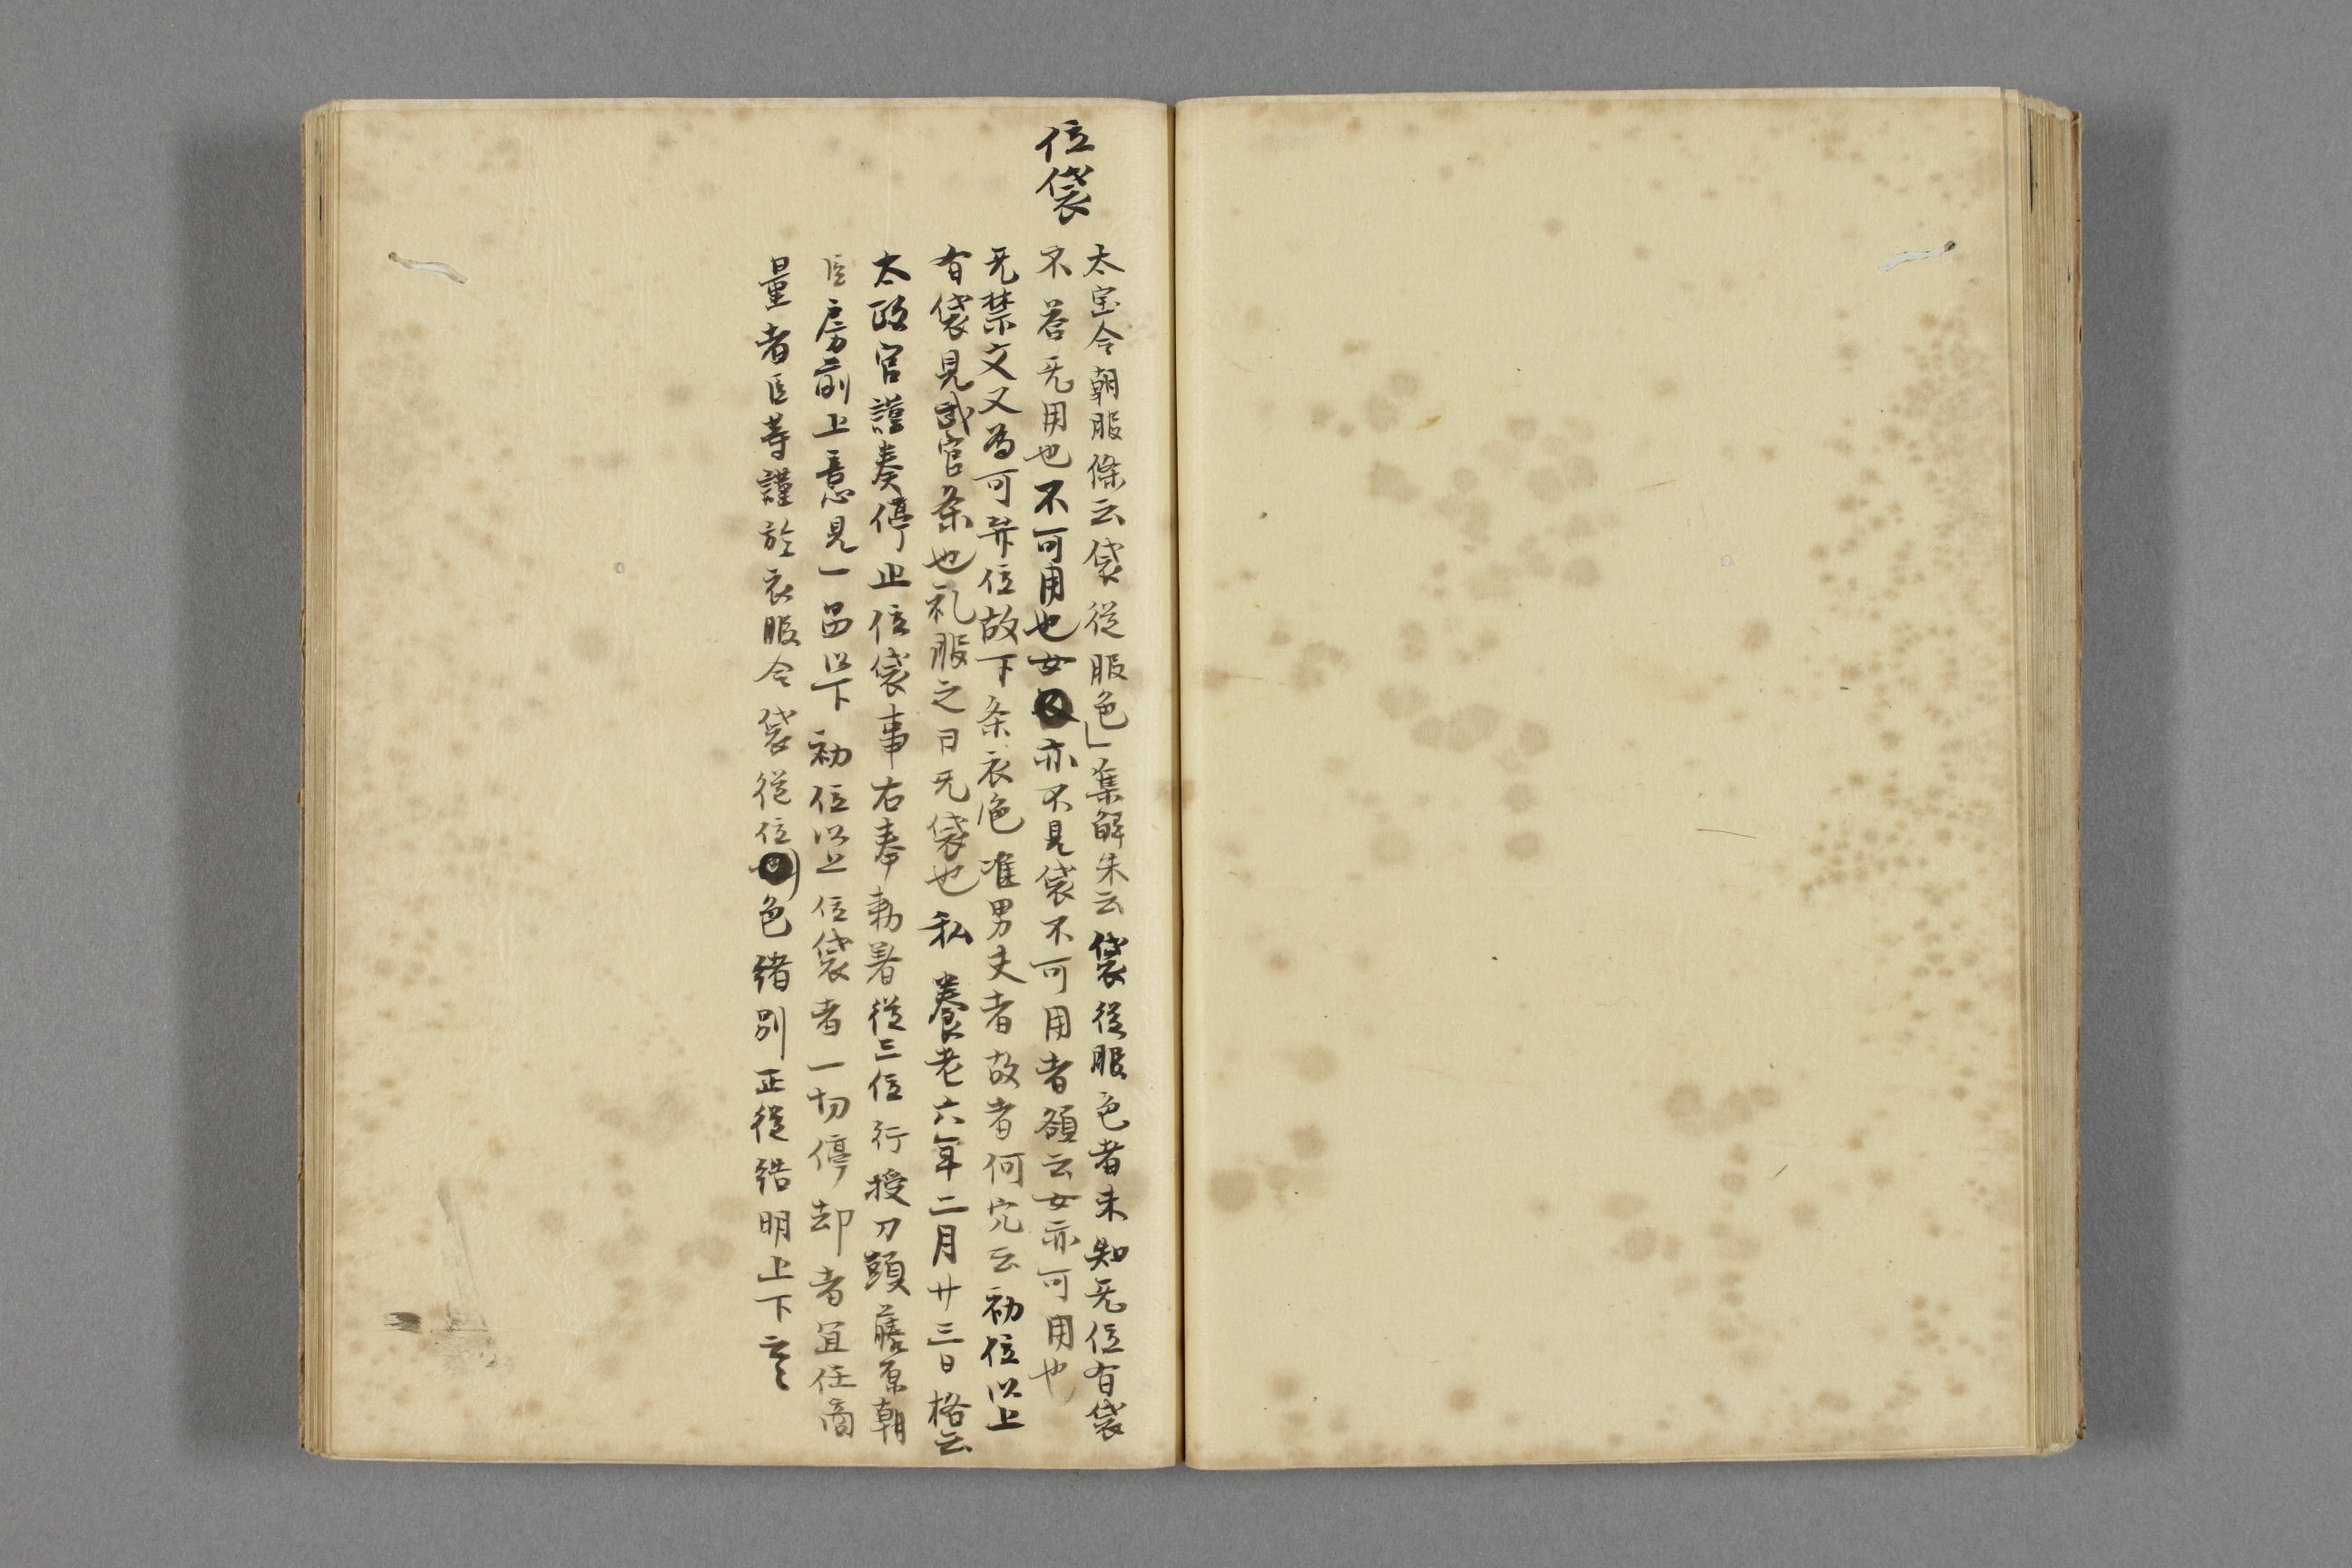 位袋
太宝令朝服條云袋従服色」集解朱云袋従服色者未知无位有袋
不荅无用也不可用也女亦不見袋不可用者額云女亦可用也
无禁文又為可并位故下条衣色准男夫者故者何穴云初位以上
有袋見武官条也礼服之日无袋也私養老六年二月廿三日格云
太政官謹奏停止位袋事右奉勅署従三位行授刀頭藤原朝
臣房前上意見一品以下初位以上位袋者一切停却者宜任啇
量者臣等謹於衣服令袋従位色緒別正従結明上下云々